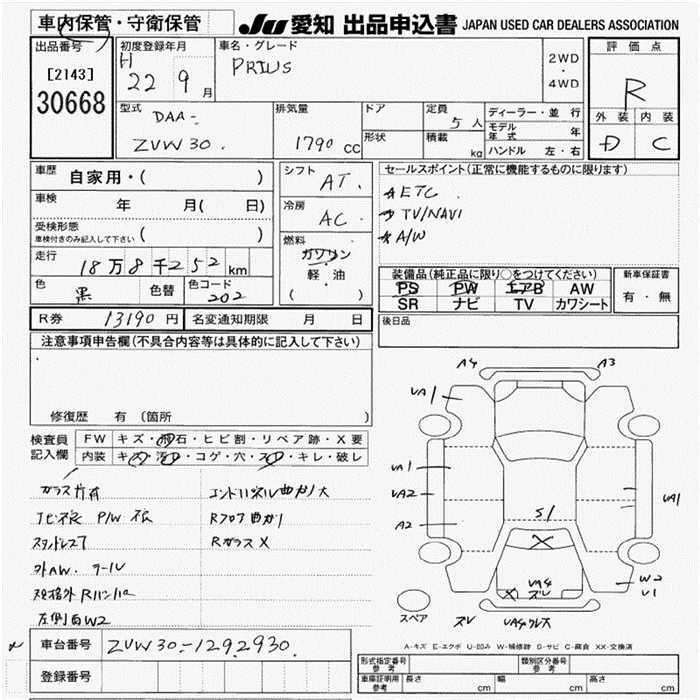 車内保管・守衛保管
JU 愛知 出品申込書 JAPAN USED CAR DEALERS ASSOCIATION
出品番号
[2143]
30668
初度登録年月
H
22 9 月
車名・グレード
PRIUS
2WD
・
4WD
評価点
R
外装 内装
D C
型式
DAA-
ZVW30.
排気量
1790 cc
ドア
形状
定員
5 人
積載
kg
ディーラー・並行
モデル年式 年
ハンドル 左・右
車歴
自家用・( )
車検
年 月( 日)
受検形態
車検付きのみ記入して下さい ( )
走行
18万8千252 km
色
黒
色替
色コード
202
シフト
AT.
冷房
AC
燃料
ガソリン
・
軽油
( )
セールスポイント(正常に機能するものに限ります)
ETC
TV/NAVI
A/W
装備品(純正品に限り○をつけてください)
PS PW エアB AW
SR ナビ TV カワシート
新車保証書
有・無
R券 13190 円
名変通知期限 月 日
後日品
注意事項申告欄(不具合内容等は具体的に記入して下さい)
修復歴 有 (箇所 )
検査員
記入欄
FW キズ・飛石・ヒビ割・リペア跡・X要
内装 キズ・汚れ・コゲ・穴・スレ・キレ・破レ
P/W
外AW.
左側面W2
Rフロア曲がり
RガラスX
A4
A3
UA1
UA1
UA2
A2
UA1
S1
X
X
UA4
ズレ
W2
U1
スペア
A-キズ E-エクボ U-凹み W-補修跡 S-サビ C-腐食 XX-交換済
車台番号 ZVW30-1292930.
登録番号
形式指定番号
参考
類別区分番号
参考
車庫証明用
参考
長さ cm
幅 cm
高さ cm